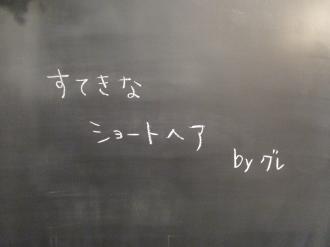 すてきな
ショートヘア
by グレ